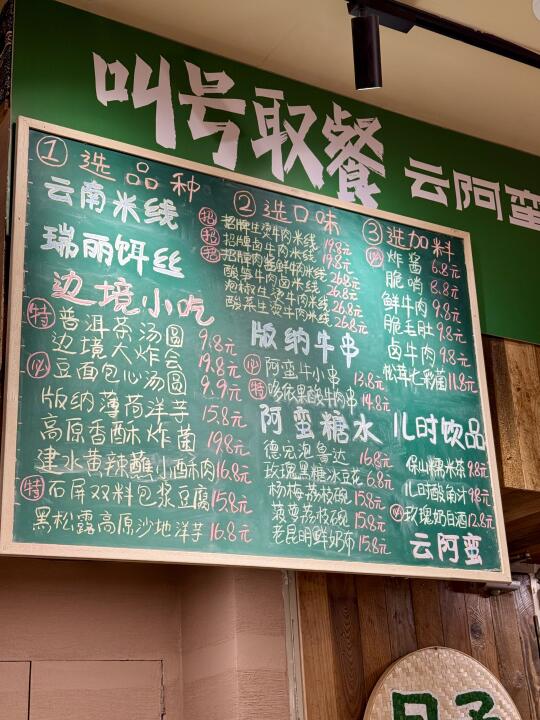 叫号取餐 云阿蛮
① 选品种
云南米线
瑞丽饵丝
边境小吃
特 普洱茶汤圆 9.8元
边境大炸会 19.8元
必 豆面包心汤圆 9.9元
版纳薄荷洋芋 15.8元
高原香酥炸菌 19.8元
建水黄辣蘸小酥肉 16.8元
特 石屏双料包浆豆腐 15.8元
黑松露高原沙地洋芋 16.8元
② 选口味
招 招牌生烫牛肉米线 19.8元
招 招牌卤牛肉米线 19.8元
招 招牌肉酱鲜牛肉米线 26.8元
酸笋牛肉卤米线 26.8元
泡椒生烫牛肉米线 26.8元
酸菜生烫牛肉米线 26.8元
版纳牛串
必 阿蛮牛小串 13.8元
特 哆依果酸牛肉串 14.8元
阿蛮糖水
德宏泡鲁达 16.8元
玫瑰黑糖冰豆花 6.8元
杨梅荔枝碗 15.8元
菠萝荔枝碗 15.8元
老昆明鲜奶布 15.8元
③ 选加料
必 炸酱 6.8元
脆哨 8.8元
鲜牛肉 9.8元
脆毛肚 9.8元
卤牛肉 9.8元
松茸七彩菌 11.8元
儿时饮品
保山糯米茶 9.8元
儿时酸角汁 9.8元
必 玫瑰奶白酒 12.8元
云阿蛮